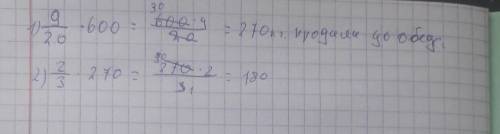 1) 9/20 · 600 = 30 600 · 9 / 20 = 270 продали до обед,
2) 2/3 · 270 = 90 270 · 2 / 3 1 = 180